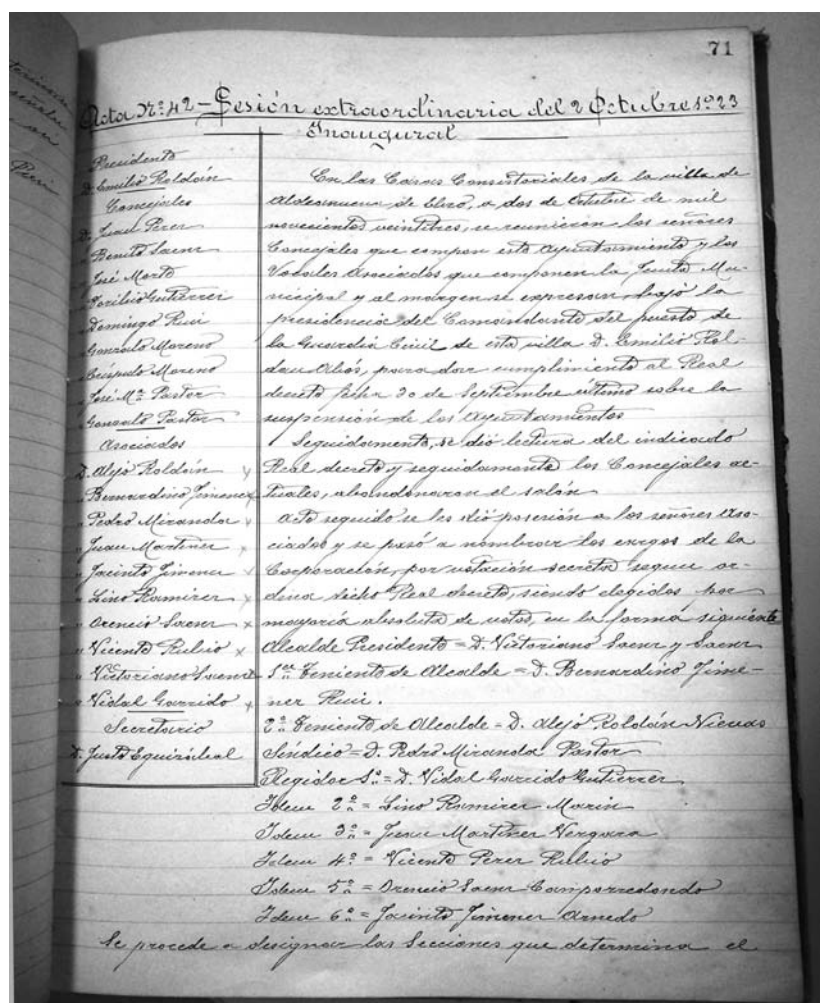 71
Acta Nº 42 – Sesión extraordinaria del 2 Octubre 1923
Inaugural
Presidente
D. Emilio Roldán
Concejales
D. Juan Perez
" Benito Saenz
" José Marto
" Toribio Gutiérrez
" Domingo Ruiz
" Gonzalo Moreno
" Críspulo Moreno
" José Mª Pastor
" Gonzalo Pastor
Asociados
D. Alejo Roldán
" Bernardino Jimenez
" Pedro Miranda
" Juan Martinez
" Jacinto Jimenez
" Lino Ramirez
" Orencio Saenz
" Vicente Rubio
" Victoriano Saenz
" Vidal Garrido
Secretario
D. Justo Eguizábal
En las Casas Consistoriales de la villa de
Aldeanueva de Ebro, a dos de Octubre de mil
novecientos veintitres, se reunieron los señores
Concejales que compon este Ayuntamiento y los
Vocales Asociados que componen la Junta Mu-
nicipal y al margen se expresan, bajo la
presidencia del Comandante del puesto de
la Guardia Civil de esta villa D. Emilio Rol-
dan Alós, para dar cumplimiento al Real
decreto fecha 30 de Septiembre último sobre la
suspensión de los Ayuntamientos
Seguidamente, se dió lectura del indicado
Real decreto y seguidamente los Concejales ac-
tuales, abandonaron el salón
Acto seguido se les dió posesión a los señores Aso-
ciados y se pasó a nombrar los cargos de la
Corporación, por votación secreta segun or-
dena dicho Real decreto, siendo elegidos por
mayoría absoluta de votos, en la forma siguiente
Alcalde Presidente = D. Victoriano Saenz y Saenz
1er Teniente de Alcalde = D. Bernardino Jime-
nez Ruiz.
2º Teniente de Alcalde = D. Alejo Roldán Nievas
Síndico = D. Pedro Miranda Pastor
Regidor 1º = D. Vidal Garrido Gutierrez
Idem 2º = Lino Ramirez Marin
Idem 3º = Juan Martinez Vergara
Idem 4º = Vicente Perez Rubio
Idem 5º = Orencio Saenz Camporredondo
Idem 6º = Jacinto Jimenez Arnedo
Se procede a designar las Secciones que determina el